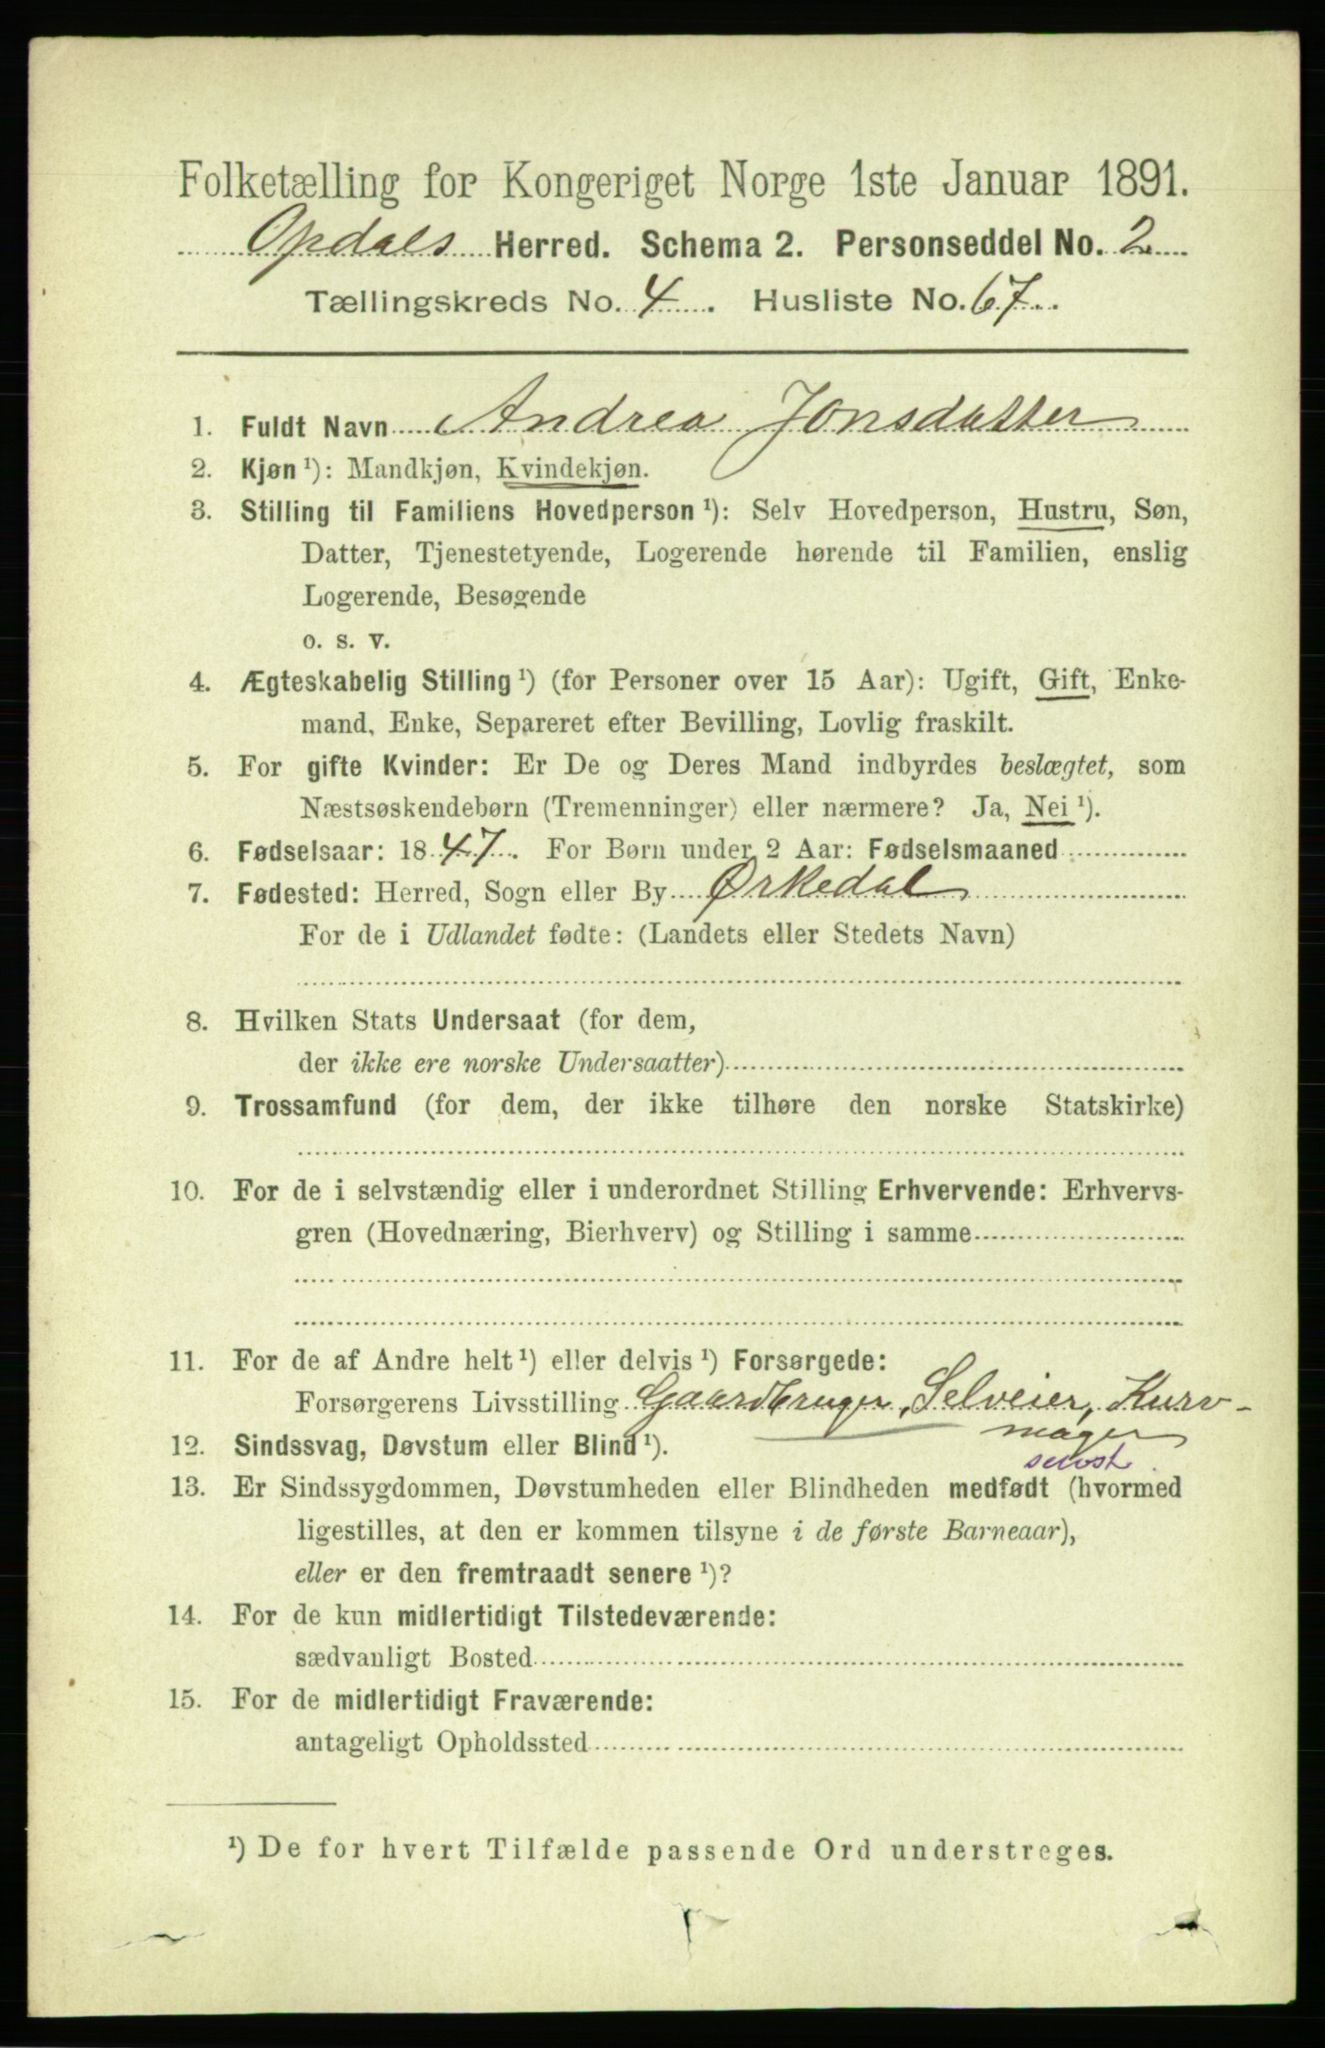 Folketælling for Kongeriget Norge 1ste Januar 1891.
Opdals Herred. Schema 2. Personseddel No. 2
Tællingskreds No. 4. Husliste No. 67.
1. Fuldt Navn Andrea Jonsdatter
2. Kjøn ¹): Mandkjøn, Kvindekjøn.
3. Stilling til Familiens Hovedperson ¹): Selv Hovedperson, Hustru, Søn,
Datter, Tjenestetyende, Logerende hørende til Familien, enslig
Logerende, Besøgende
o. s. v.
4. Ægteskabelig Stilling ¹) (for Personer over 15 Aar): Ugift, Gift, Enke-
mand, Enke, Separeret efter Bevilling, Lovlig fraskilt.
5. For gifte Kvinder: Er De og Deres Mand indbyrdes beslægtet, som
Næstsøskendebørn (Tremenninger) eller nærmere? Ja, Nei ¹).
6. Fødselsaar: 1847. For Børn under 2 Aar: Fødselsmaaned
7. Fødested: Herred, Sogn eller By Ørkedal
For de i Udlandet fødte: (Landets eller Stedets Navn)
8. Hvilken Stats Undersaat (for dem,
der ikke ere norske Undersaatter)
9. Trossamfund (for dem, der ikke tilhøre den norske Statskirke)
10. For de i selvstændig eller i underordnet Stilling Erhvervende: Erhvervs-
gren (Hovednæring, Bierhverv) og Stilling i samme
11. For de af Andre helt ¹) eller delvis ¹) Forsørgede:
Forsørgerens Livsstilling Gaardbruger, Selveier, Kurv-
mager
12. Sindssvag, Døvstum eller Blind ¹).
selvst.
13. Er Sindssygdommen, Døvstumheden eller Blindheden medfødt (hvormed
ligestilles, at den er kommen tilsyne i de første Barneaar),
eller er den fremtraadt senere ¹)?
14. For de kun midlertidigt Tilstedeværende:
sædvanligt Bosted
15. For de midlertidigt Fraværende:
antageligt Opholdssted
¹) De for hvert Tilfælde passende Ord understreges.